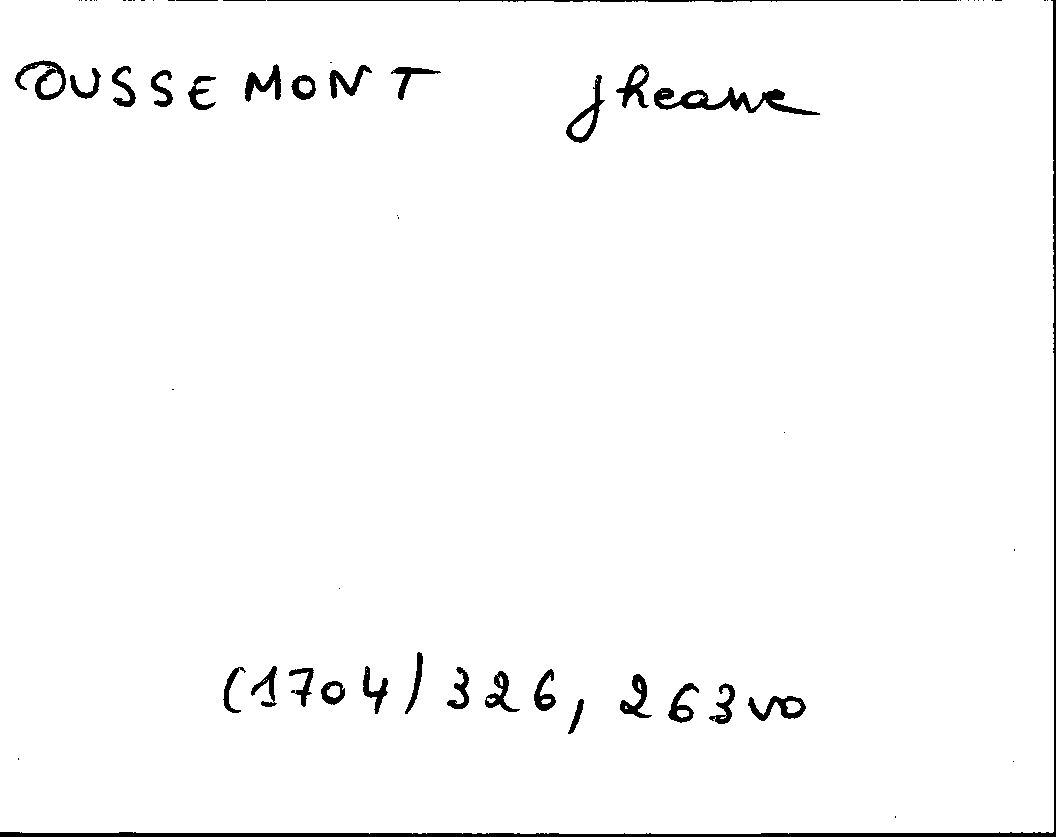 OUSSEMONT Jheanne
(1704) 326, 263vo